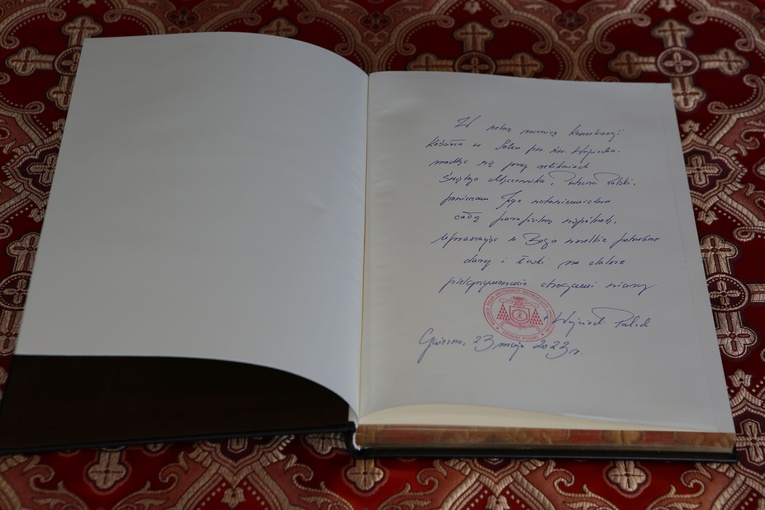 W setną rocznicę konsekracji
Kościoła w św. Wojciecha.
modląc się przy relikwiach
Świętego Męczennika, Patrona Polski,
polecam Jego wstawiennictwu
całą parafialną wspólnotę,
wypraszając u Boga wszelkie potrzebne
dary i łaski na dalsze
pielgrzymowanie drogami wiary
+ Wojciech Polak
Gniezno, 23 maja 2023 r.